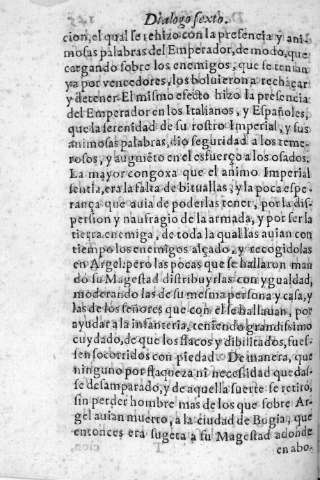 Dialogo sexto.
cion, el qual se rehizo con la presencia y ani
mosas palabras del Emperador, de modo, que
cargando sobre los enemigos, que se tenian
ya por vencedores, los boluieron a rechaçar
y detener. El mismo efeto hizo la presencia
del Emperador en los Italianos, y Españoles,
que la serenidad de su rostro Imperial, y sus
animosas palabras, dio seguridad a los teme-
rosos, y augmẽto en el esfuerço a los osados.
La mayor congoxa que el animo Imperial
sentia, era la falta de bituallas, y la poca espe-
rança que auia de poderlas tener, por la dis-
persion y naufragio de la armada, y por ser la
tierra enemiga, de toda la qual las auian con
tiempo los enemigos alçado, y recogidolas
en Argel: pero las pocas que se hallaron man
dò su Magestad distribuyrlas con ygualdad,
moderando las de su mesma persona y casa, y
las de los señores que con el se hallauan, por
ayudar a la infanteria, teniendo grandissimo
cuydado, de que los flacos y dibilitados, fues-
sen socorridos con piedad. De manera, que
ninguno por flaqueza ni necessidad quedas-
se desamparado, y de aquella suerte se retirò,
sin perder hombre mas de los que sobre Ar-
gel auian muerto, a la ciudad de Bugia, que
entonces era sugeta a su Magestad adonde
en abo-